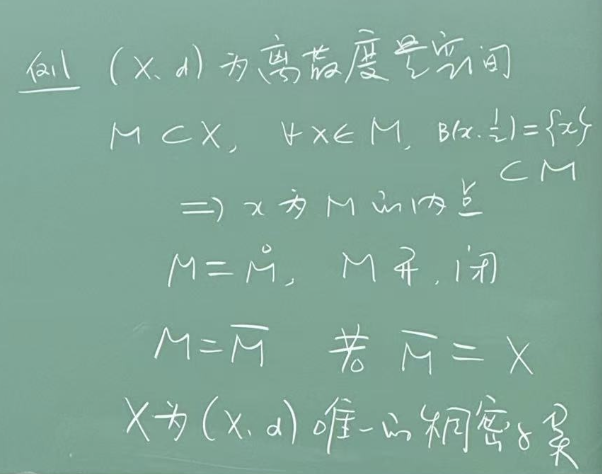 例1 (X、d) 为离散度量空间
M ⊂ X, ∀x∈M, B(x.½)={x}
⊂ M
⇒ x 为 M 的内点
M = M̊, M 开.闭
M = M̅ 若 M̅ = X
X为(X、d)唯一的稠密子集